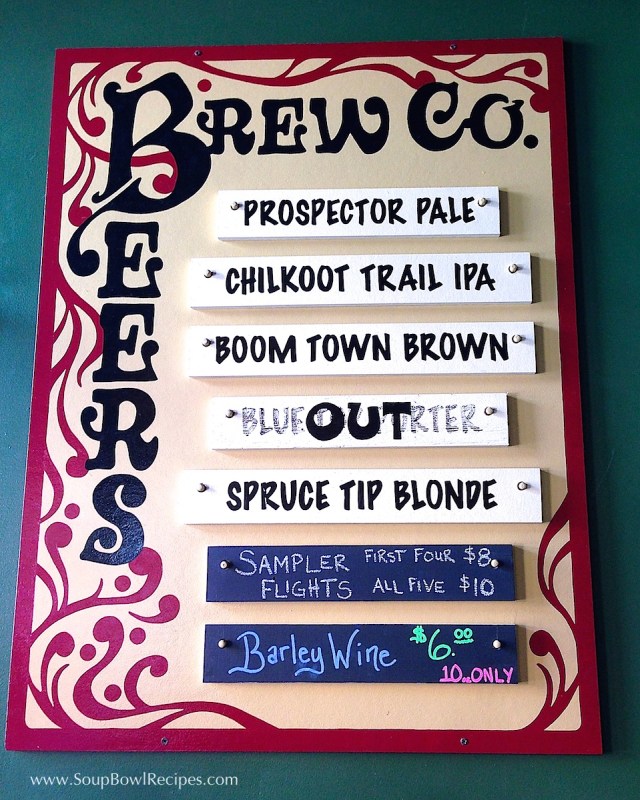 BREW CO.
BEERS
PROSPECTOR PALE
CHILKOOT TRAIL IPA
BOOM TOWN BROWN
OUT
SPRUCE TIP BLONDE
SAMPLER FIRST FOUR $8
FLIGHTS ALL FIVE $10
Barley Wine $6.00
10oz ONLY
www.SoupBowlRecipes.com